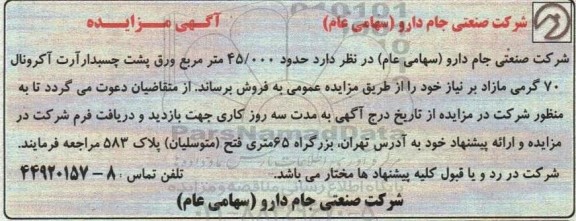 شرکت صنعتی جام دارو (سهامی عام) آگهی مزایده
شرکت صنعتی جام دارو (سهامی عام) در نظر دارد حدود ۴۵/۰۰۰ متر مربع ورق پشت چسبدارآرت آکرونال
۷۰ گرمی مازاد بر نیاز خود را از طریق مزایده عمومی به فروش برساند. از متقاضیان دعوت می گردد تا به
منظور شرکت در مزایده از تاریخ درج آگهی به مدت سه روز کاری جهت بازدید و دریافت فرم شرکت در
مزایده و ارائه پیشنهاد خود به آدرس تهران، بزرگراه ۶۵متری فتح (متوسلیان) پلاک ۵۸۳ مراجعه فرمایند.
شرکت در رد و یا قبول کلیه پیشنهاد ها مختار می باشد. تلفن تماس : ۸ - ۴۴۹۲۰۱۵۷
شرکت صنعتی جام دارو (سهامی عام)
ParsNamadData
پایگاه اطلاع رسانی مناقصه و مزایده